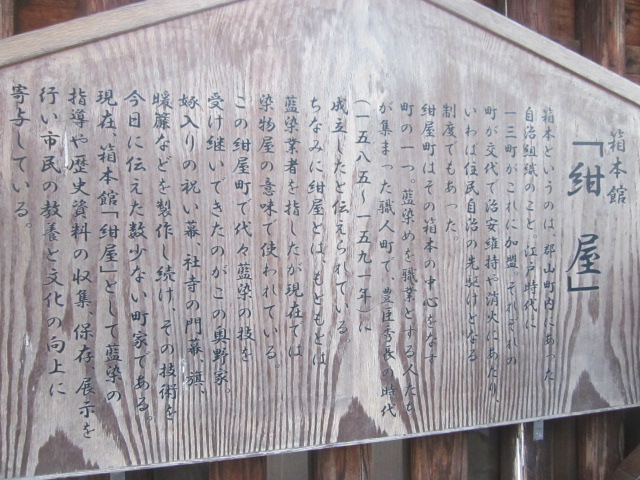 箱本館
「紺屋」
箱本というのは、郡山町内にあった
自治組織のこと。江戸時代に
一三町がこれに加盟、それぞれの
町が交代で治安維持や消火にあたり、
いわば住民自治の先駆けとなる
制度でもあった。
紺屋町はその箱本の中心をなす
町の一つ。藍染めを職業とする人たち
が集まった職人町で、豊臣秀長の時代
(一五八五〜一五九一年)に
成立したと伝えられている。
ちなみに紺屋とは、もともとは
藍染業者を指したが現在では
染物屋の意味で使われている。
この紺屋町で代々藍染の技を
受け継いできたのがこの奥野家。
嫁入りの祝い幕、社寺の門幕、旗、
暖簾などを製作し続け、その技術を
今日に伝えた数少ない町家である。
現在、箱本館「紺屋」として藍染の
指導や歴史資料の収集、保存、展示を
行い市民の教養と文化の向上に
寄与している。